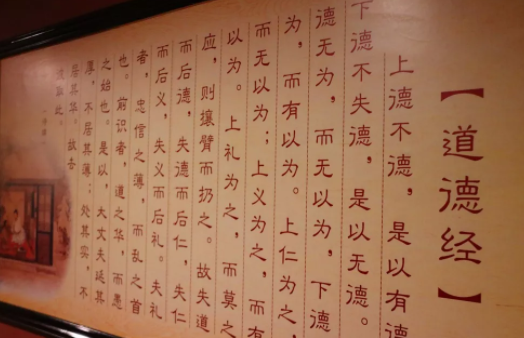 【道德经】
上德不德，是以有德
下德不失德，是以无德。
德无为，而无以为，下德
为，而有以为。上仁为之，
而无以为；上义为之，而有
以为。上礼为之，而莫之
应，则攘臂而扔之。故失道
而后德，失德而后仁，失仁
而后义，失义而后礼。夫礼
者，忠信之薄，而乱之首
也。前识者，道之华，而愚
之始也。是以，大丈夫处其
厚，不居其薄；处其实，不
居其华。故去
彼取此。